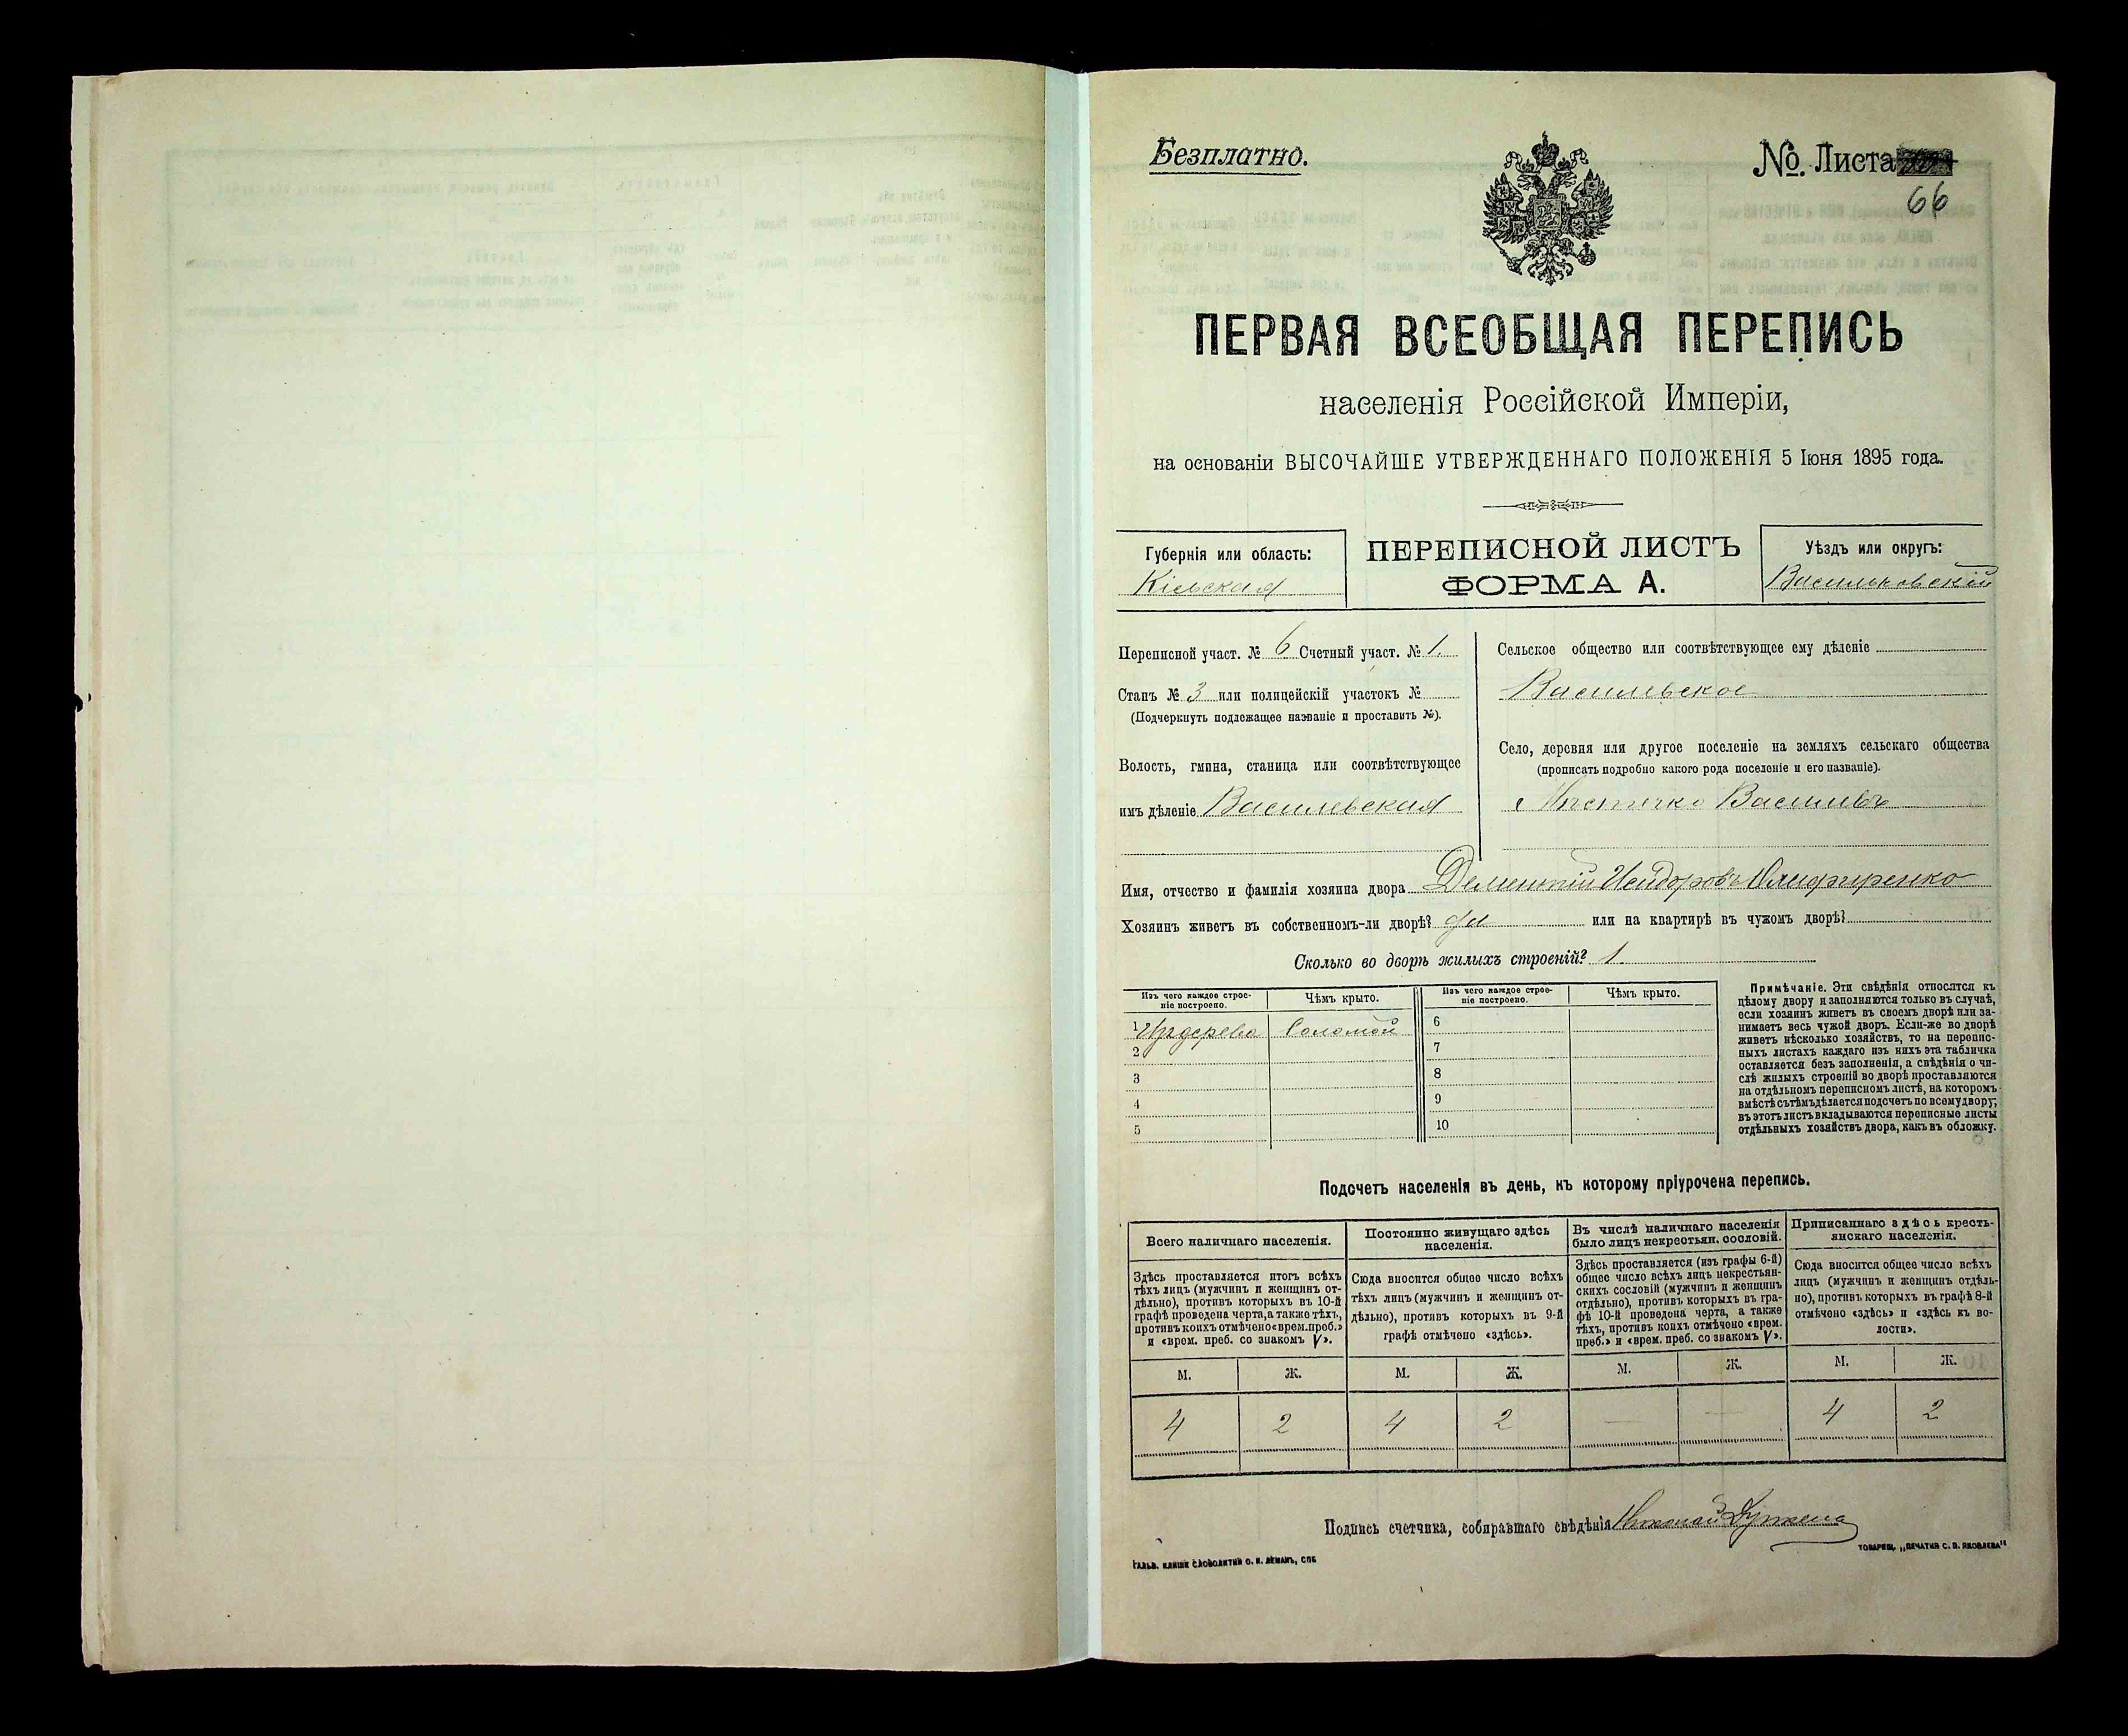 Безплатно.
No. Листа
66
ПЕРВАЯ ВСЕОБЩАЯ ПЕРЕПИСЬ
населенія Россійской Имперіи,
на основаніи ВЫСОЧАЙШЕ УТВЕРЖДЕННАГО ПОЛОЖЕНІЯ 5 Іюня 1895 года.
Губернія или область:
Кіевская
ПЕРЕПИСНОЙ ЛИСТЪ
ФОРМА А.
Уѣздъ или округъ:
Васильковскій
Переписной участ. № 6 Счетный участ. № 1.
Станъ № 3 или полицейскій участокъ №
(Подчеркнуть подлежащее названіе и проставить №).
Волость, гмина, станица или соотвѣтствующее
имъ дѣленіе Василевская
Сельское общество или соотвѣтствующее ему дѣленіе
Василевское
Село, деревня или другое поселеніе на земляхъ сельскаго общества
(прописать подробно какого рода поселеніе и его названіе).
Мѣстечко Василевъ
Имя, отчество и фамилія хозяина двора Дементій Исидоровъ Олифиренко
Хозяинъ живетъ въ собственномъ-ли дворѣ? да или на квартирѣ въ чужомъ дворѣ?
Сколько во дворѣ жилыхъ строеній? 1.
Изъ чего каждое строе-
ніе построено.
Чѣмъ крыто.
Изъ чего каждое строе-
ніе построено.
Чѣмъ крыто.
1 Изъ дерева Соломой
2
3
4
5
6
7
8
9
10
Примѣчаніе. Эти свѣдѣнія относятся къ
цѣлому двору и заполняются только въ случаѣ,
если хозяинъ живетъ въ своемъ дворѣ или за-
нимаетъ весь чужой дворъ. Если-же во дворѣ
живетъ нѣсколько хозяйствъ, то на перепис-
ныхъ листахъ каждаго изъ нихъ эта табличка
оставляется безъ заполненія, а свѣдѣнія о чи-
слѣ жилыхъ строеній во дворѣ проставляются
на отдѣльномъ переписномъ листѣ, на которомъ
вмѣстѣ съ тѣмъ дѣлается подсчетъ по всему двору;
въ этотъ листъ вкладываются переписные листы
отдѣльныхъ хозяйствъ двора, какъ въ обложку.
Подсчетъ населенія въ день, къ которому пріурочена перепись.
Всего наличнаго населенія.
Постоянно живущаго здѣсь
населенія.
Въ числѣ наличнаго населенія
было лицъ некрестьян. сословій.
Приписаннаго здѣсь кресть-
янскаго населенія.
Здѣсь проставляется итогъ всѣхъ
тѣхъ лицъ (мужчинъ и женщинъ от-
дѣльно), противъ которыхъ въ 10-й
графѣ проведена черта, а также тѣхъ,
противъ коихъ отмѣчено «врем. преб.»
и «врем. преб. со знакомъ V».
Сюда вносится общее число всѣхъ
тѣхъ лицъ (мужчинъ и женщинъ от-
дѣльно), противъ которыхъ въ 9-й
графѣ отмѣчено «здѣсь».
Здѣсь проставляется (изъ графы 6-й)
общее число всѣхъ лицъ некрестьян-
скихъ сословій (мужчинъ и женщинъ
отдѣльно), противъ которыхъ въ гра-
фѣ 10-й проведена черта, а также
тѣхъ, противъ коихъ отмѣчено «врем.
преб.» и «врем. преб. со знакомъ V».
Сюда вносится общее число всѣхъ
лицъ (мужчинъ и женщинъ отдѣль-
но), противъ которыхъ въ графѣ 8-й
отмѣчено «здѣсь» и «здѣсь къ во-
лости».
М. Ж. М. Ж. М. Ж. М. Ж.
4 2 4 2 — — 4 2
Подпись счетчика, собиравшаго свѣдѣнія Николай
ГАЛЬВ. КЛИШЕ СЛОВОЛИТНИ О. И. ЛЕМАНЪ, СПБ
ТОВАРИЩ. „ПЕЧАТНЯ С. П. ЯКОВЛЕВА"